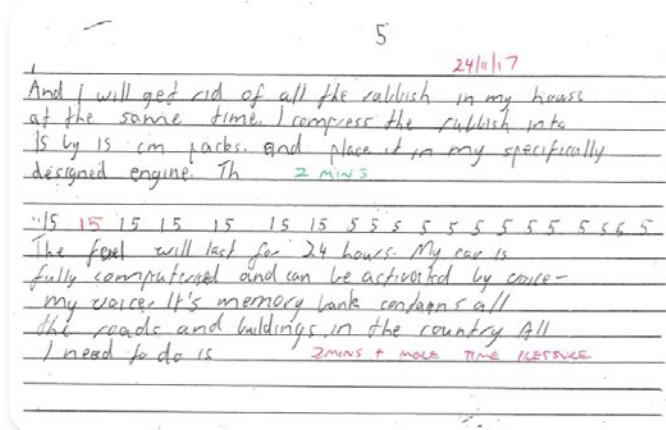 5
24/11/17
And I will get rid of all the rubbish in my house
at the same time. I compress the rubbish into
15 by 15 cm packs. and place it in my specifically
designed engine. Th 2 MINS
"15 15 15 15 15 15 15 5 5 5 5 5 5 5 5 5 5 5 6 5
The fuel will last for 24 hours. My car is
fully computerised and can be activated by voice-
my voice. It's memory bank contains all
the roads and buildings in the country All
I need to do is 2 MINS + MORE TIME PRESSURE